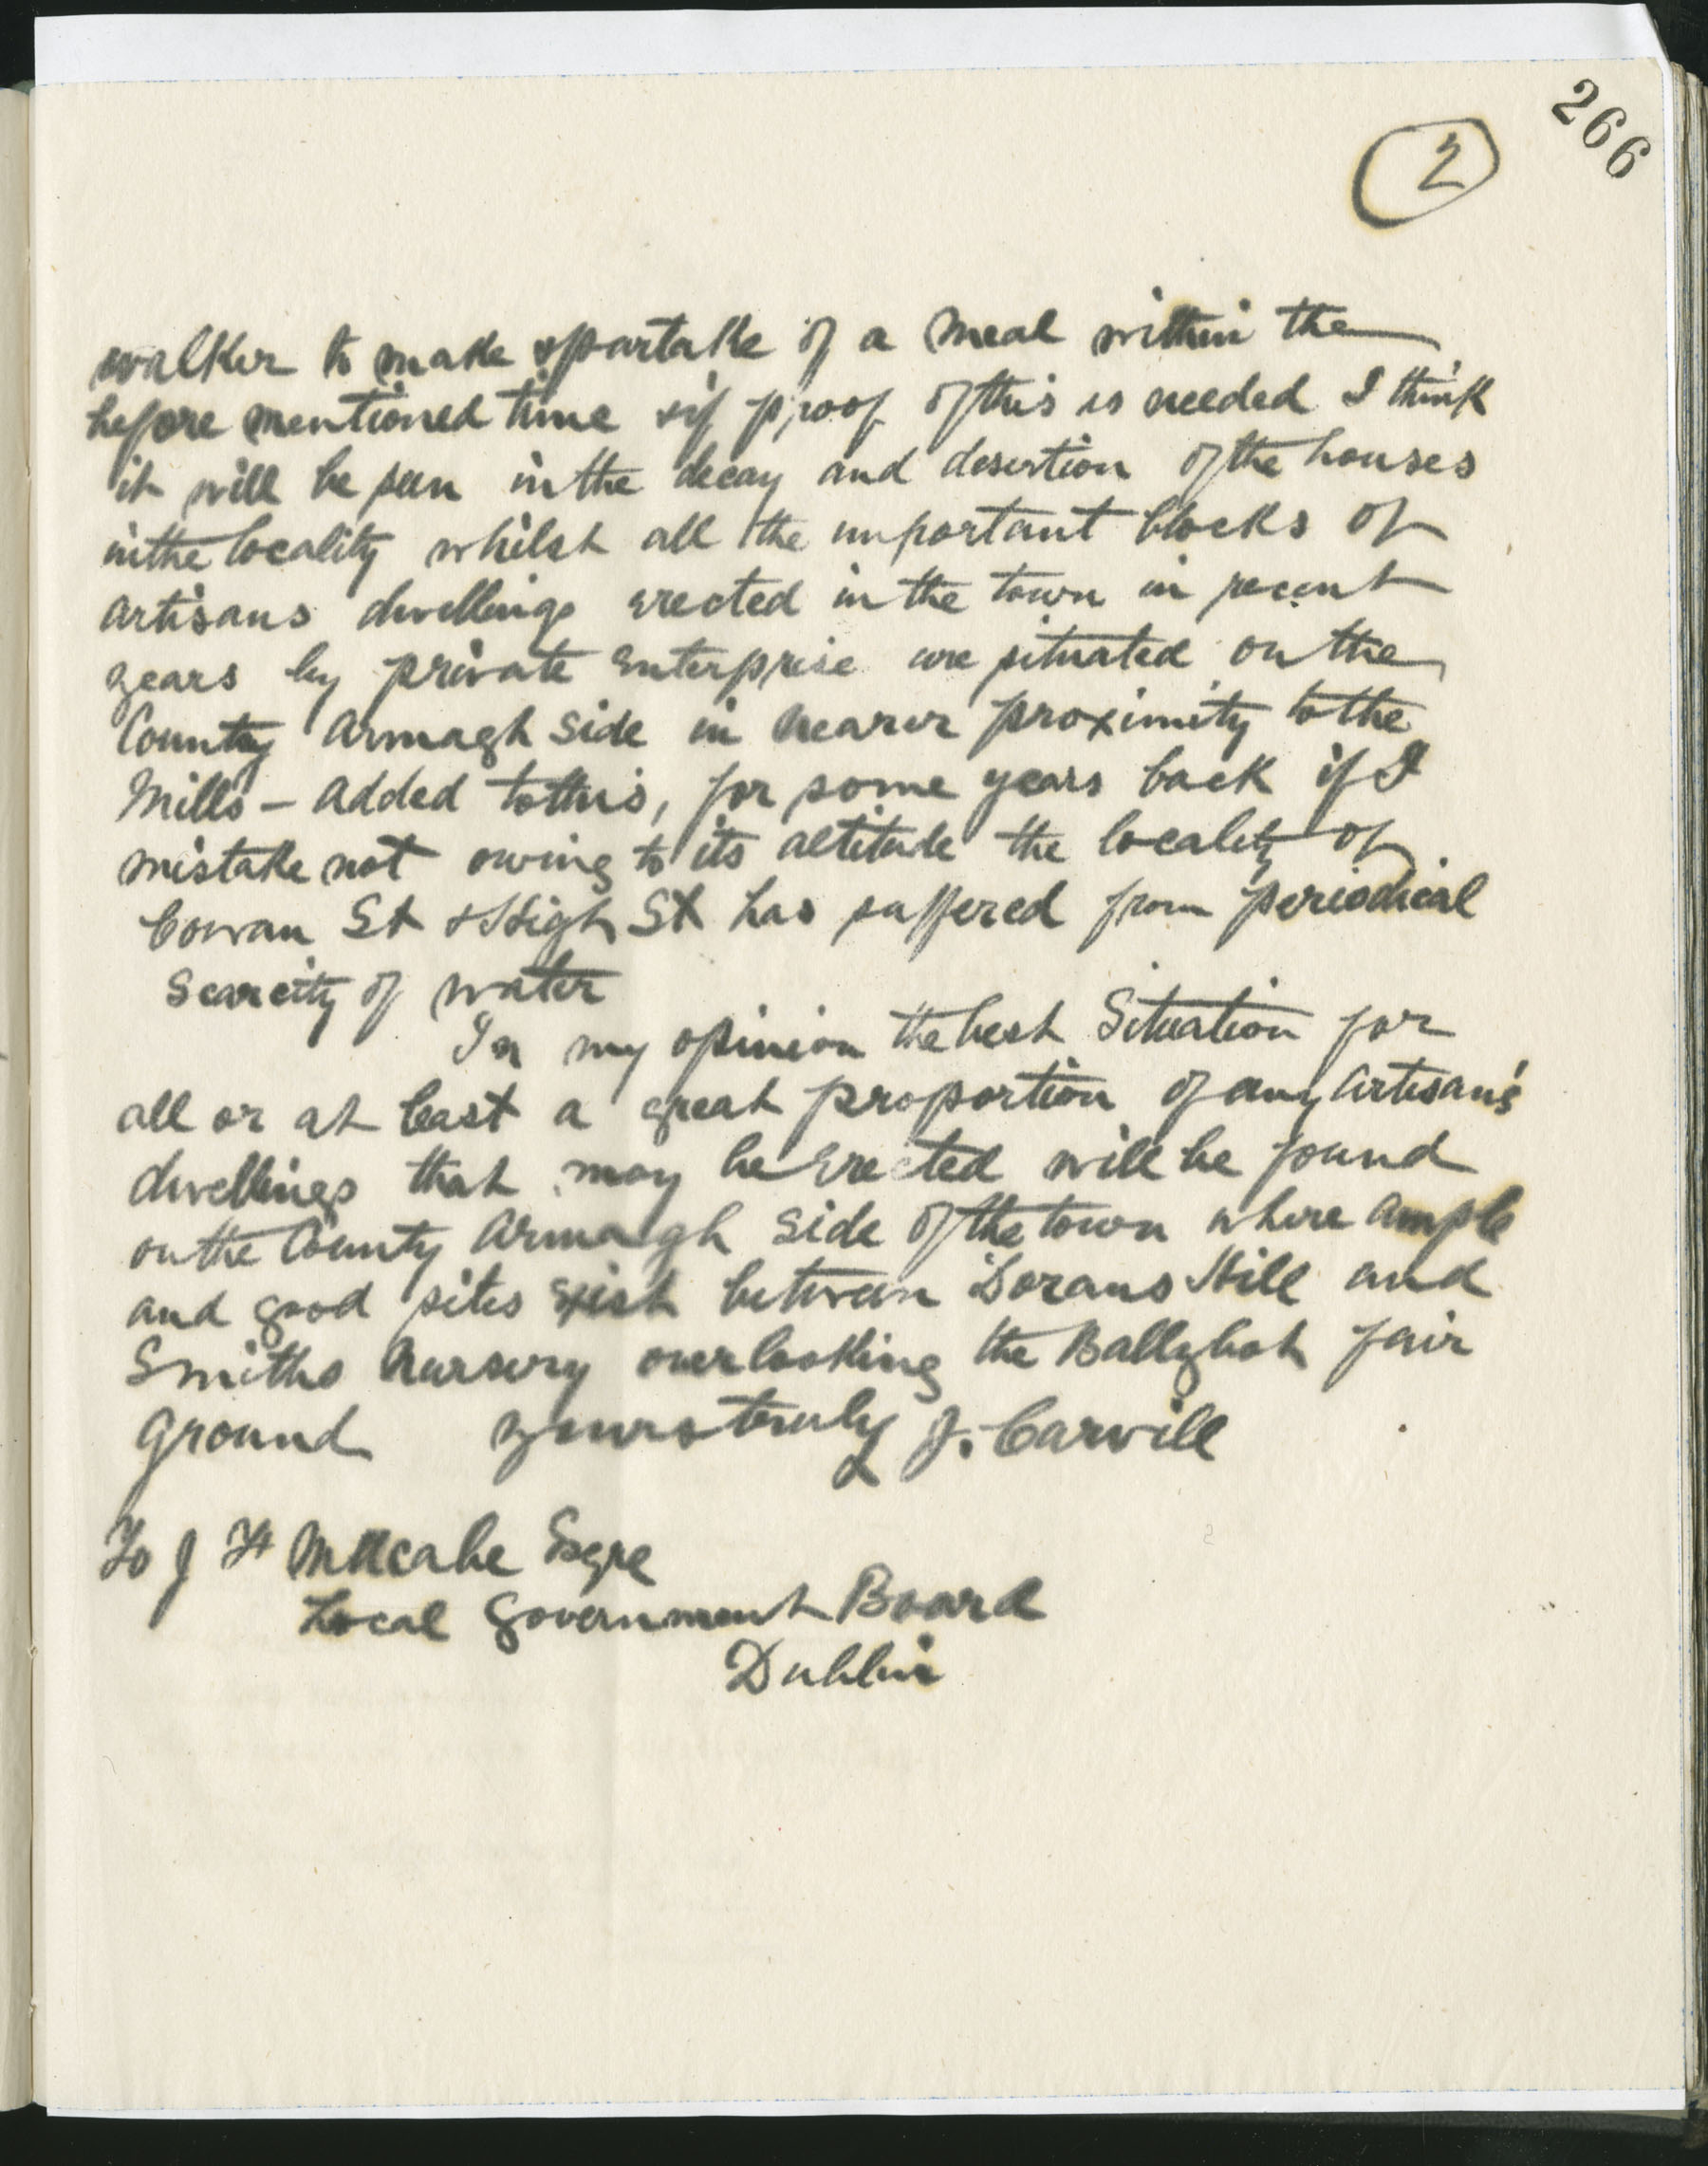 266
2
walker to make & partake of a meal within the
before mentioned time & if proof of this is needed I think
it will be seen in the decay and desertion of the houses
in the locality whilst all the important blocks of
artisans dwellings erected in the town in recent
years by private enterprise are situated on the
County Armagh side in nearer proximity to the
Mills - Added to this, for some years back if I
mistake not owing to its altitude the locality of
Cowan St & High St has suffered from periodical
scarcity of water
In my opinion the best situation for
all or at least a great proportion of any Artisan's
dwellings that may be erected will be found
on the County Armagh side of the town where ample
and good sites exist between Dorans Hill and
Smiths Nursery overlooking the Ballybot fair
ground yours truly J. Carvill
To J H McCabe Esqre
Local Government Board
Dublin